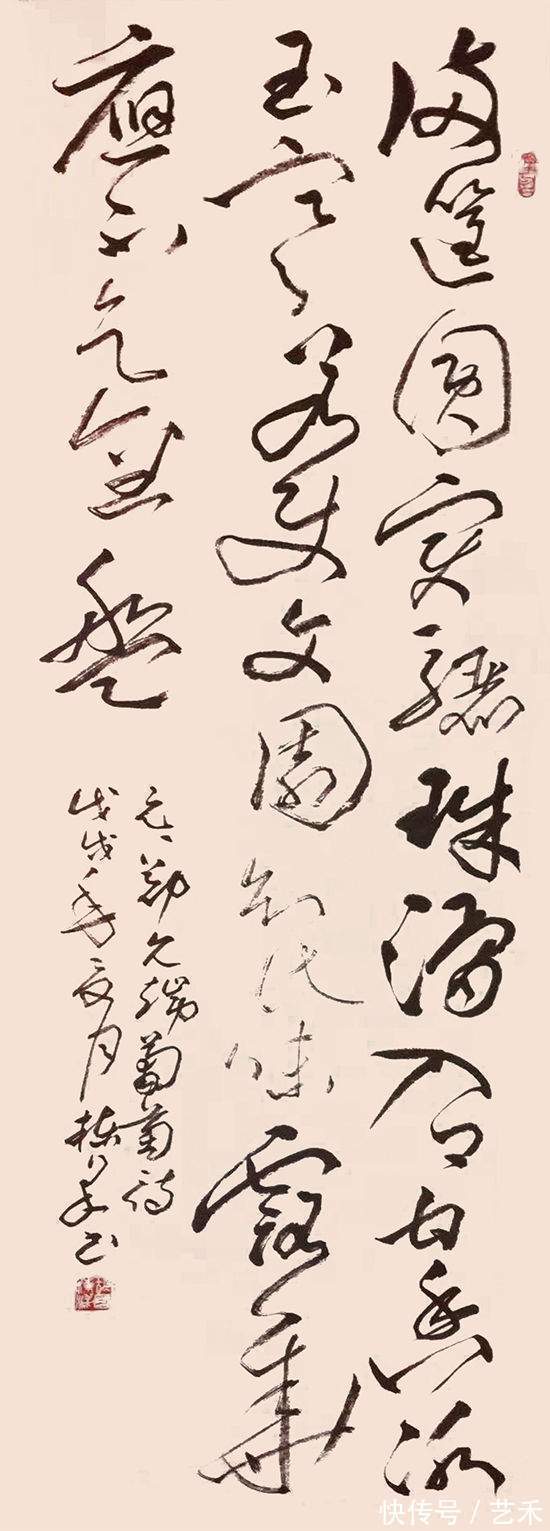 满筐圆实骊珠滑入口甘香冰
玉寒若使文园知此味露华
应不乞金盘
元郑允端葡萄诗
戊戌年夏月
书
快传号 / 艺禾